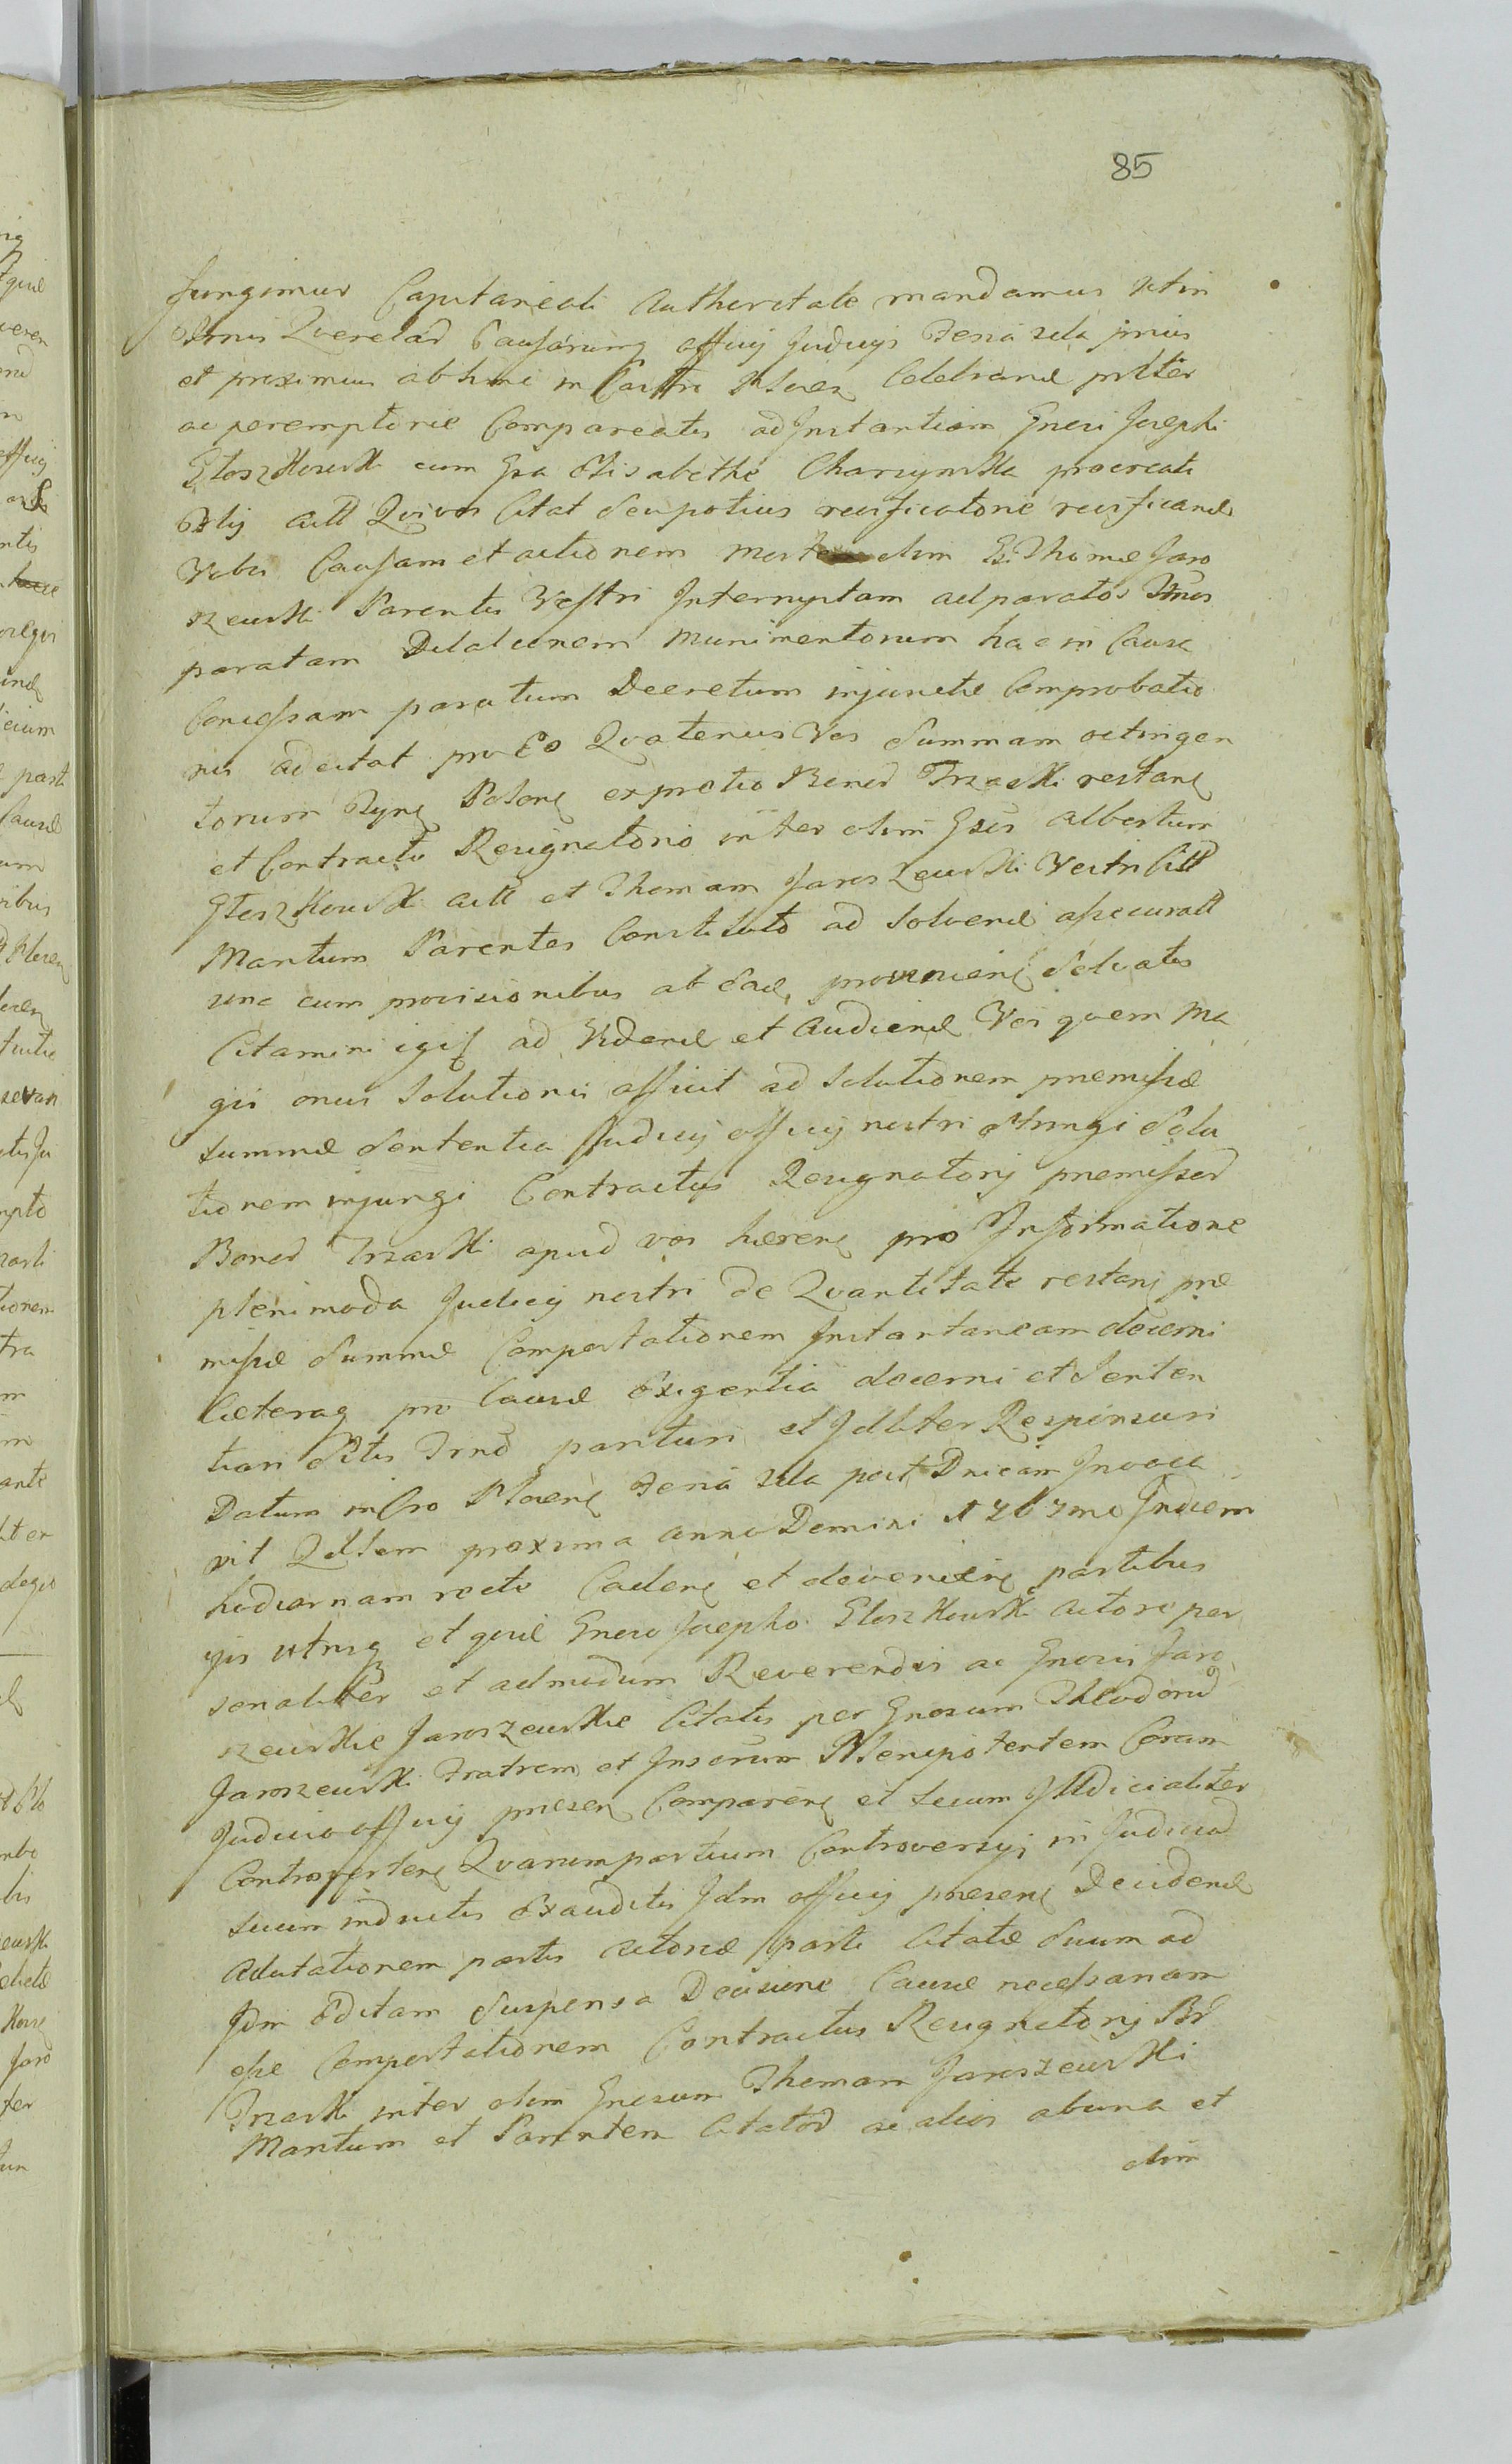 85
fungimur Capitaneali Authoritate mandamus Ut in
Termis Querelar Causarumq officij Judicijs Feria 2da prius
et proximus abhinc in Castro Plocen Celebrand pnlter
ac peremptorie Compareatis ad Instantiam Gnesi Josephi
Gloszkowski cum Gsa Elisabetha Charzynska procreati
Filij Act Qui vos Citat Seu potius resuscitatorie
Vobis Causam et actionem morte olim G. Thomæ Jaro
szewski Parentis Vestri Interruptam ad paratos Tmos
paratam Dilationem Munimentorum hac in Causa
Concessam paratum Decretum injunctæ Comprobatio
nis ad citat pro Eo Quatenus Vos Summam octingen
torum flq Polonq ex pretio Bonor Trzaski restanq
et Contractu Resignatorio inter olim Gsos Albertum
Gloszkowski Act et Thomam Jaroszewski Vestri Citt
Maritum Parentes Constituto ad Solvend assecuratt
una cum provisionibus ab Ead provenienq Solvatis
Citamini igit ad Videnđ et Audienđ Vos quem Ma
gis onus Solutionis afficit ad Solutionem præmissæ
Summæ Sententia Judicij officij nostri adstringi Solu
tionem injungi Contractus Resignatorij præmissor
Bonor Trzaski apud vos hærenq pro Informatione
plenimoda Judicij nostri de Quantitate restanq præ
missæ Summæ Comportationem Instantaneam decerni
Cæteraq pro Causæ Exigentia decerni et Senten
tiari Sitis Trnd parituri et Jdlliter Responsuri
Datum in Cro Plocenq Feria 2da post Dnicam Invoca
vit Qdtam proxima anno Domini 1767mo In diem
hodiernam recte Cadenq et devenienq partibus
ijs utrisq et quid Gneso Josepho Gloszkowski Actore per
sonaliter et admodum Reverendis ac Gnosis Jaro
szewskie Jaroszewskie Citatis per Gnosum Theodorũ
Jaroszewski Fratrem et Insorum Plenipotentem Coram
Judicio officij præsen Comparenq et secum Jlldicialiter
Controvertenq Quarum partium Controversijs in Judiciũ
suum inductis Exauditis Jdm officij præsenq Decidend
Adcitationem partis Actoreæ parti Citatæ Suum ad
Jdm Editam Suspensa Decisione Causæ necessariam
esse Comportationem Contractus Resignatorij Br
Trzaski inter olim Gnesum Thomam Jaroszewski
Maritum et Parentem Citator ac alios ab una et
olim